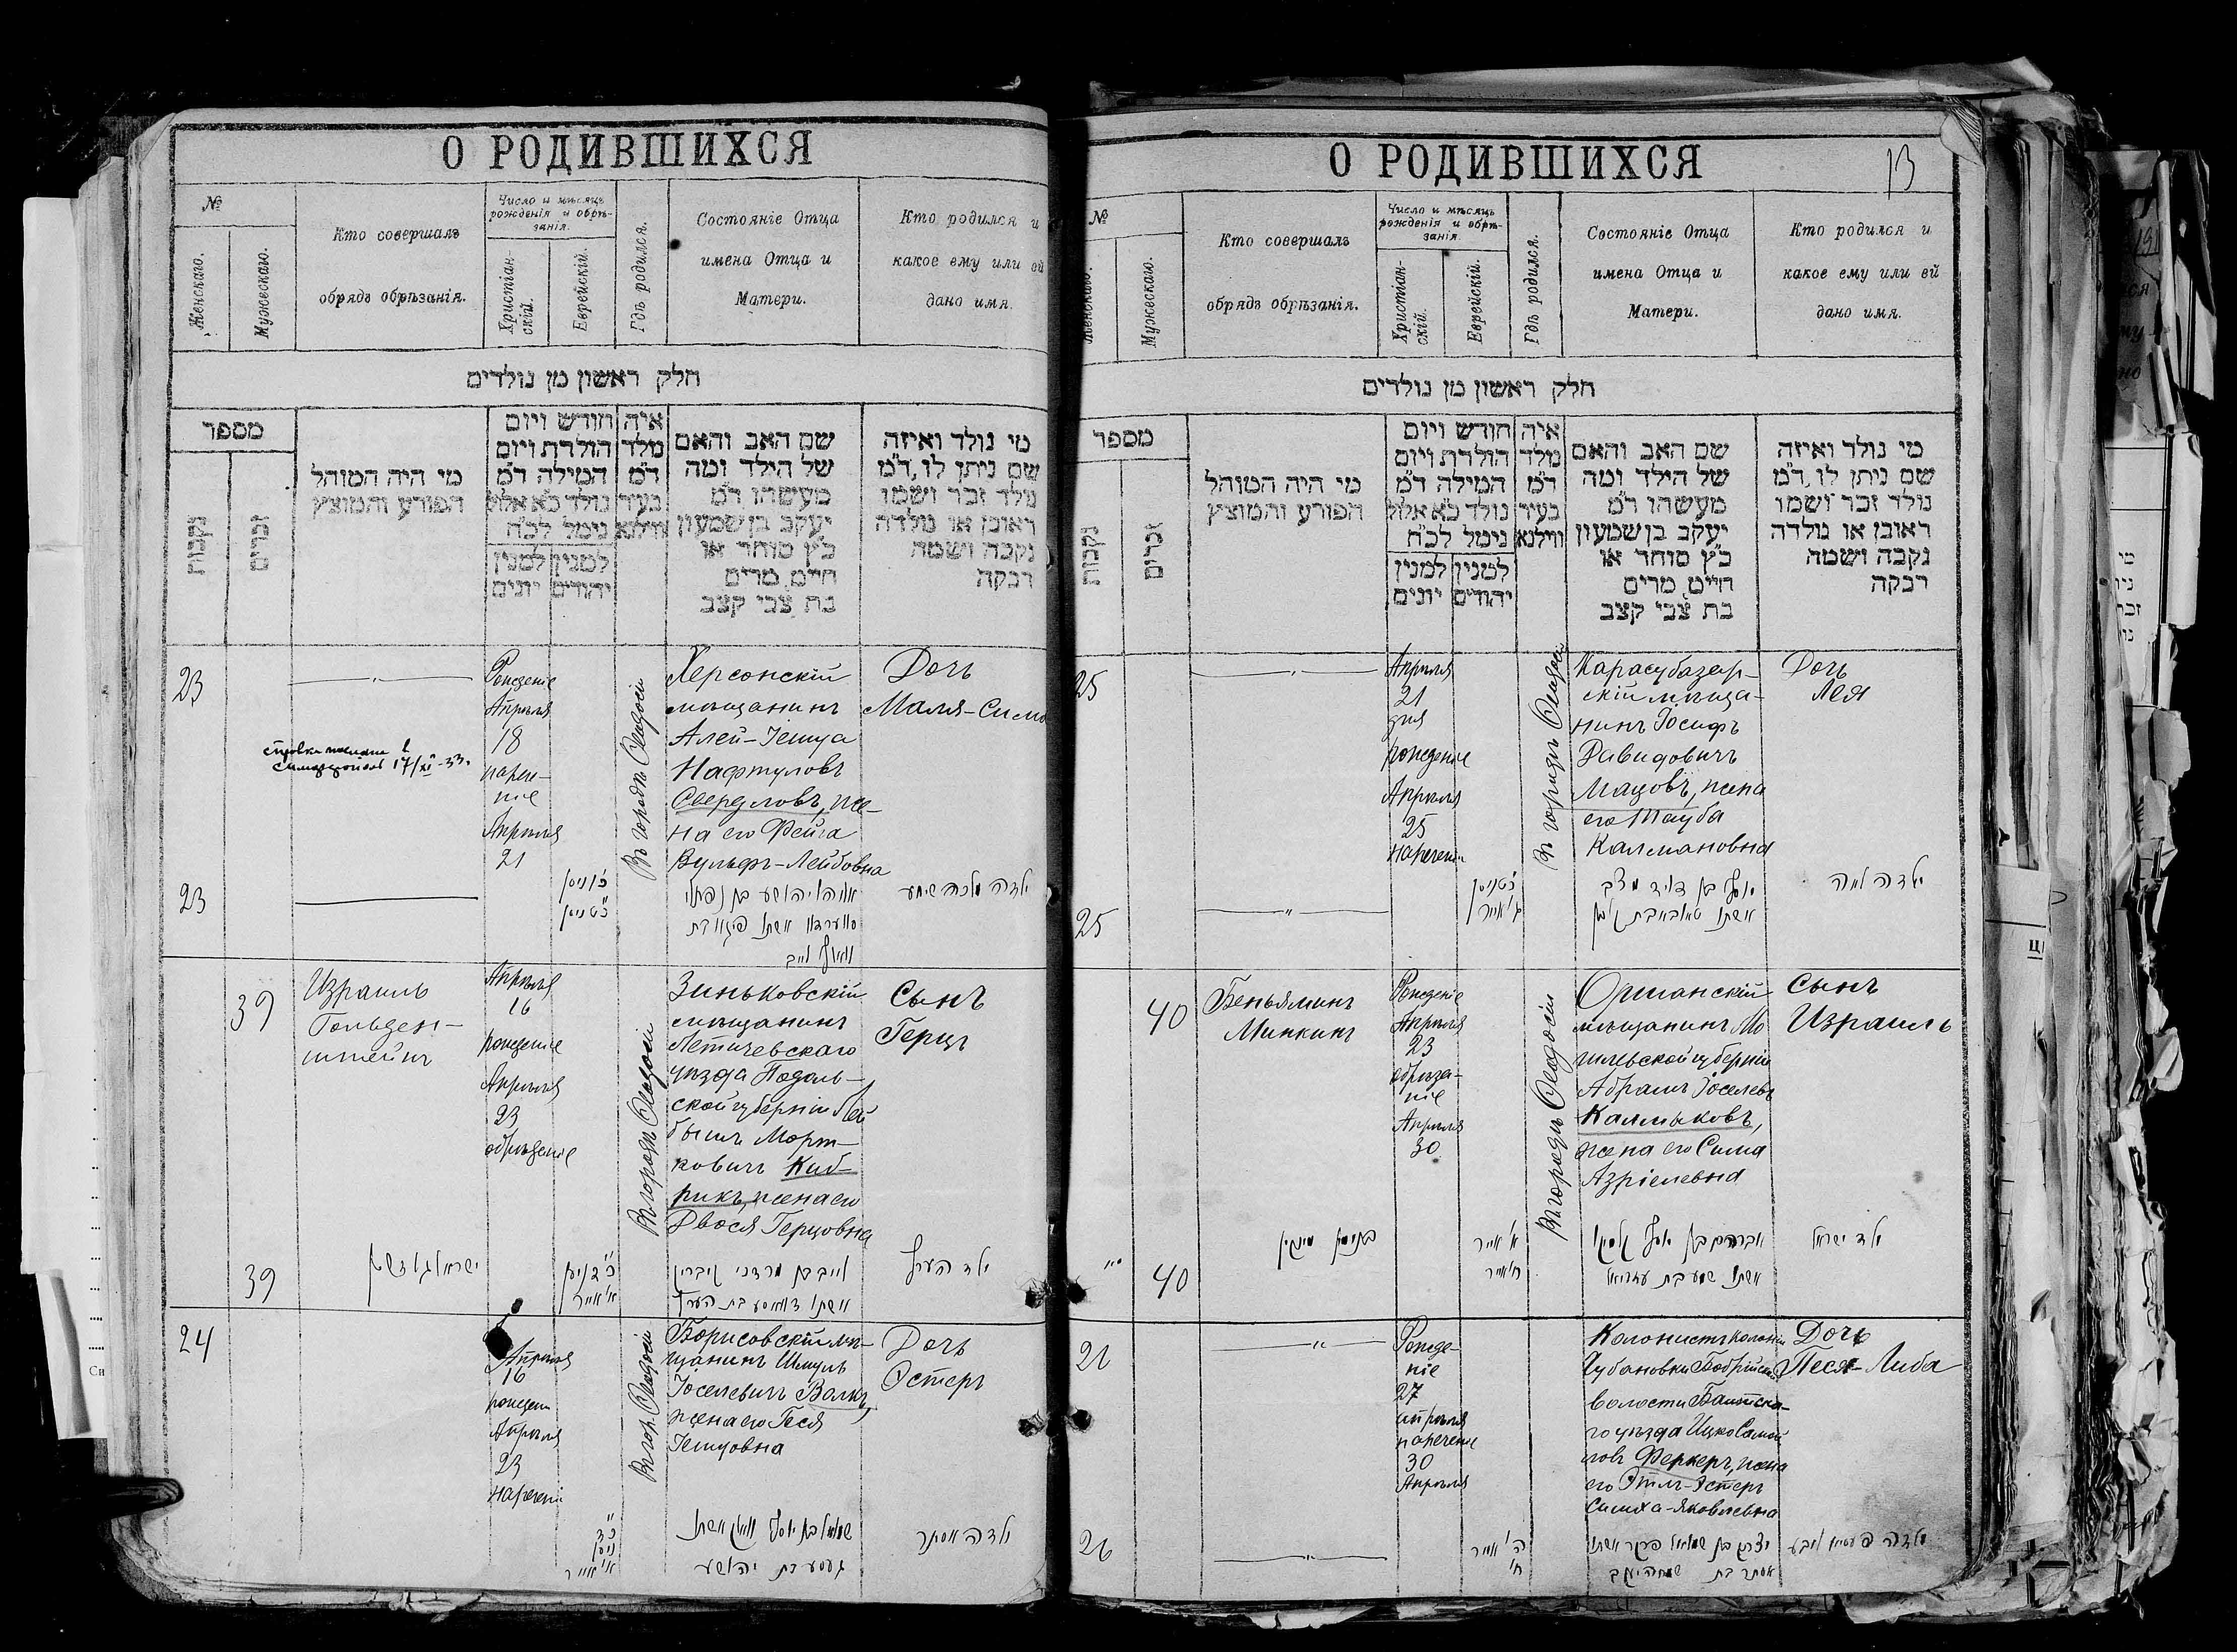 О РОДИВШИХСЯ
№
Женскаго.
Мужескаго.
Кто совершалъ
обрядъ обрѣзанія.
Число и мѣсяцъ
рожденія и обрѣ-
занія.
Христіан-
скій.
Еврейскій.
Гдѣ родился.
Состояніе Отца
имена Отца и
Матери.
Кто родился и
какое ему или ей
дано имя.
חלק ראשון מן נולדים
מספר
נקבות
זכרים
מי היה המוהל
הפורע והמוצץ
חודש ויום
הולדת ויום
המילה ד״מ
נולד כ״א אלול
נימל לכ״ח
למנין למנין
יהודים יונים
איה
מלד
ד״מ
בעיר
ווילנא
שם האב והאם
של הילד ומה
מעשהו ד״מ
יעקב בן שמעון
כ״ץ סוחר או
חייט, מרים
בת צבי קצב
מי נולד ואיזה
שם ניתן לו, ד״מ
נולד זכר ושמו
ראובן או נולדה
נקבה ושמה
רבקה
23
Рожденіе
Апрѣля
18
нареч-
ніе
Апрѣля
21
Въ городѣ Ѳеодосіи
Херсонскій
мѣщанинъ
Алей-Іешуа
Нафтуловъ
Свердловъ, же-
на его Фейга
Вульфъ-Лейбовна
Дочь
Маля-Сима
23
כ״ו ניסן
כ״ט ניסן
39
Израиль
Гольден-
штейнъ
Апрѣля
16
рожденіе
Апрѣля
23
обрѣзаніе
Въ городѣ Ѳеодосіи
Зиньковскій
мѣщанинъ
Летичевскаго
уѣзда Подоль-
ской губерніи Лей
бышъ Морт-
ковичъ Киб-
рикъ, жена его
Двося Герцовна
Сынъ
Герцъ
39
כ״ד ניסן
א׳ אייר
24
Апрѣля
16
рожден
Апрѣля
23
наречені
Въ гор. Ѳеодосіи
Борисовскій мѣ-
щанинъ Шмуль
Іоселевичъ Валкъ,
жена его Геся
Іешуовна
Дочь
Эстеръ
כ״ד
ניסן
א׳ אייר
שמואל בן יוסף וואלק אשתו
געסע בת יהושע
ילדה אסתר
О РОДИВШИХСЯ
13
№
Женскаго.
Мужескаго.
Кто совершалъ
обрядъ обрѣзанія.
Число и мѣсяцъ
рожденія и обрѣ-
занія.
Христіан-
скій.
Еврейскій.
Гдѣ родился.
Состояніе Отца
имена Отца и
Матери.
Кто родился и
какое ему или ей
дано имя.
חלק ראשון מן נולדים
מספר
נקבות
זכרים
מי היה המוהל
הפורע והמוצץ
חודש ויום
הולדת ויום
המילה ד״מ
נולד כ״א אלול
נימל לכ״ח
למנין למנין
יהודים יונים
איה
מלד
ד״מ
בעיר
ווילנא
שם האב והאם
של הילד ומה
מעשהו ד״מ
יעקב בן שמעון
כ״ץ סוחר או
חייט מרים
בת צבי קצב
מי נולד ואיזה
שם ניתן לו, ד״מ
נולד זכר ושמו
ראובן או נולדה
נקבה ושמה
רבקה
25
Апрѣля
21
дня
рожденіе
Апрѣля
25
наречені
Въ городѣ Ѳеодосіи
Карасубазар-
скій мѣща-
нинъ Іосифъ
Давидовичъ
Мацовъ, жена
его Тауба
Калмановна
Дочь
Лея
25
כ״ט ניסן
ג׳ אייר
ילדה לאה
40
Беньяминъ
Минкинъ
Рожденіе
Апрѣля
23
обрѣза-
ніе
Апрѣля
30
Въ городѣ Ѳеодосіи
Оршанскій
мѣщанинъ Мо
гилевской губерніи
Абрамъ Іоселевъ
Калмыковъ,
жена его Сима
Азріелевна
Сынъ
Израиль
40
בנימין מינקין
א אייר
ח׳ אייר
אשתו סימע בת עזריאל
ילד ישראל
21
Рожде-
ніе
27
апрѣля
нареченіе
30
Апрѣля
Колонистъ колоніи
волости Балтска-
го уѣзда Ицко Самой
ловъ Феркеръ, жена
его Этль-Эстеръ
Симха-Яковлевна
Дочь
Песя-Либа
26
ה׳ אייר
ח׳